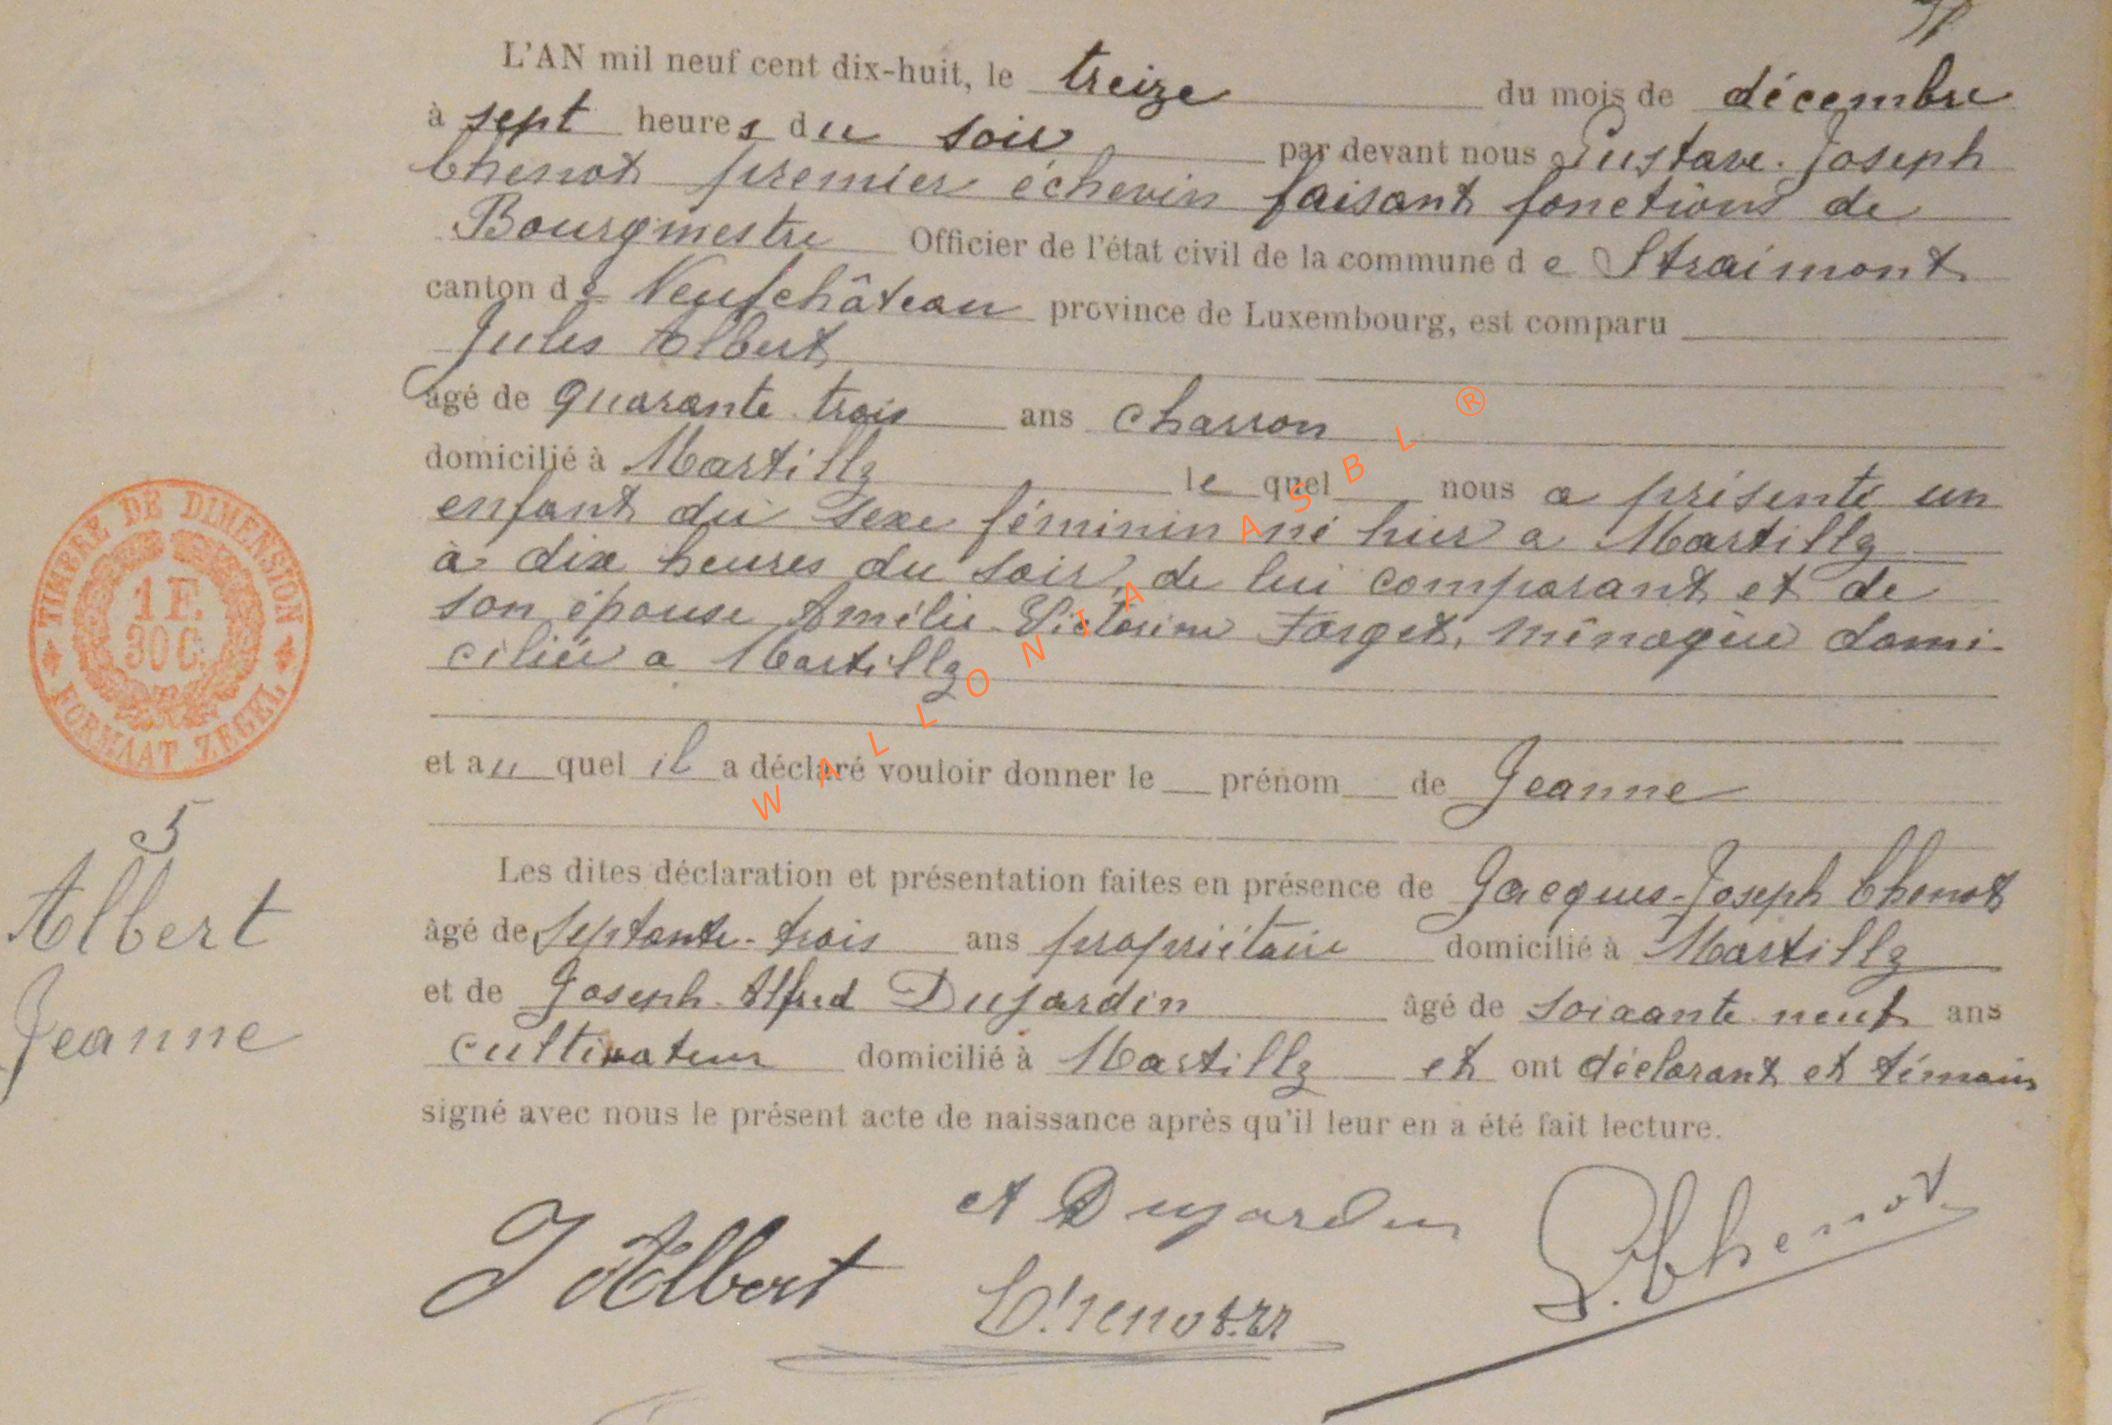 L'AN mil neuf cent dix-huit, le treize du mois de décembre
à sept heures du soir par devant nous Gustave-Joseph
Chenot premier échevin faisant fonctions de
Bourgmestre Officier de l'état civil de la commune de Straimont
canton de Neufchâteau province de Luxembourg, est comparu
Jules Albert
âgé de quarante trois ans charron
domicilié à Martilly lequel nous a présenté un
enfant du sexe féminin né hier a Martilly
à dix heures du soir, de lui comparant et de
son épouse Amélie-Victorine Forget, ménagère domi-
ciliée a Martilly
et au quel il a déclaré vouloir donner le prénom de Jeanne
Les dites déclaration et présentation faites en présence de Jacques-Joseph Chenot
âgé de septante-trois ans propriétaire domicilié à Martilly
et de Joseph-Alfred Dujardin âgé de soixante neuf ans
cultivateur domicilié à Martilly et ont déclarant et témoins
signé avec nous le présent acte de naissance après qu'il leur en a été fait lecture.
A Dujardin
J Albert
G. Chenot
TIMBRE DE DIMENSION
1 F.
30 C.
FORMAAT ZEGEL
5
Albert
Jeanne
WALLONIA ASBL ®